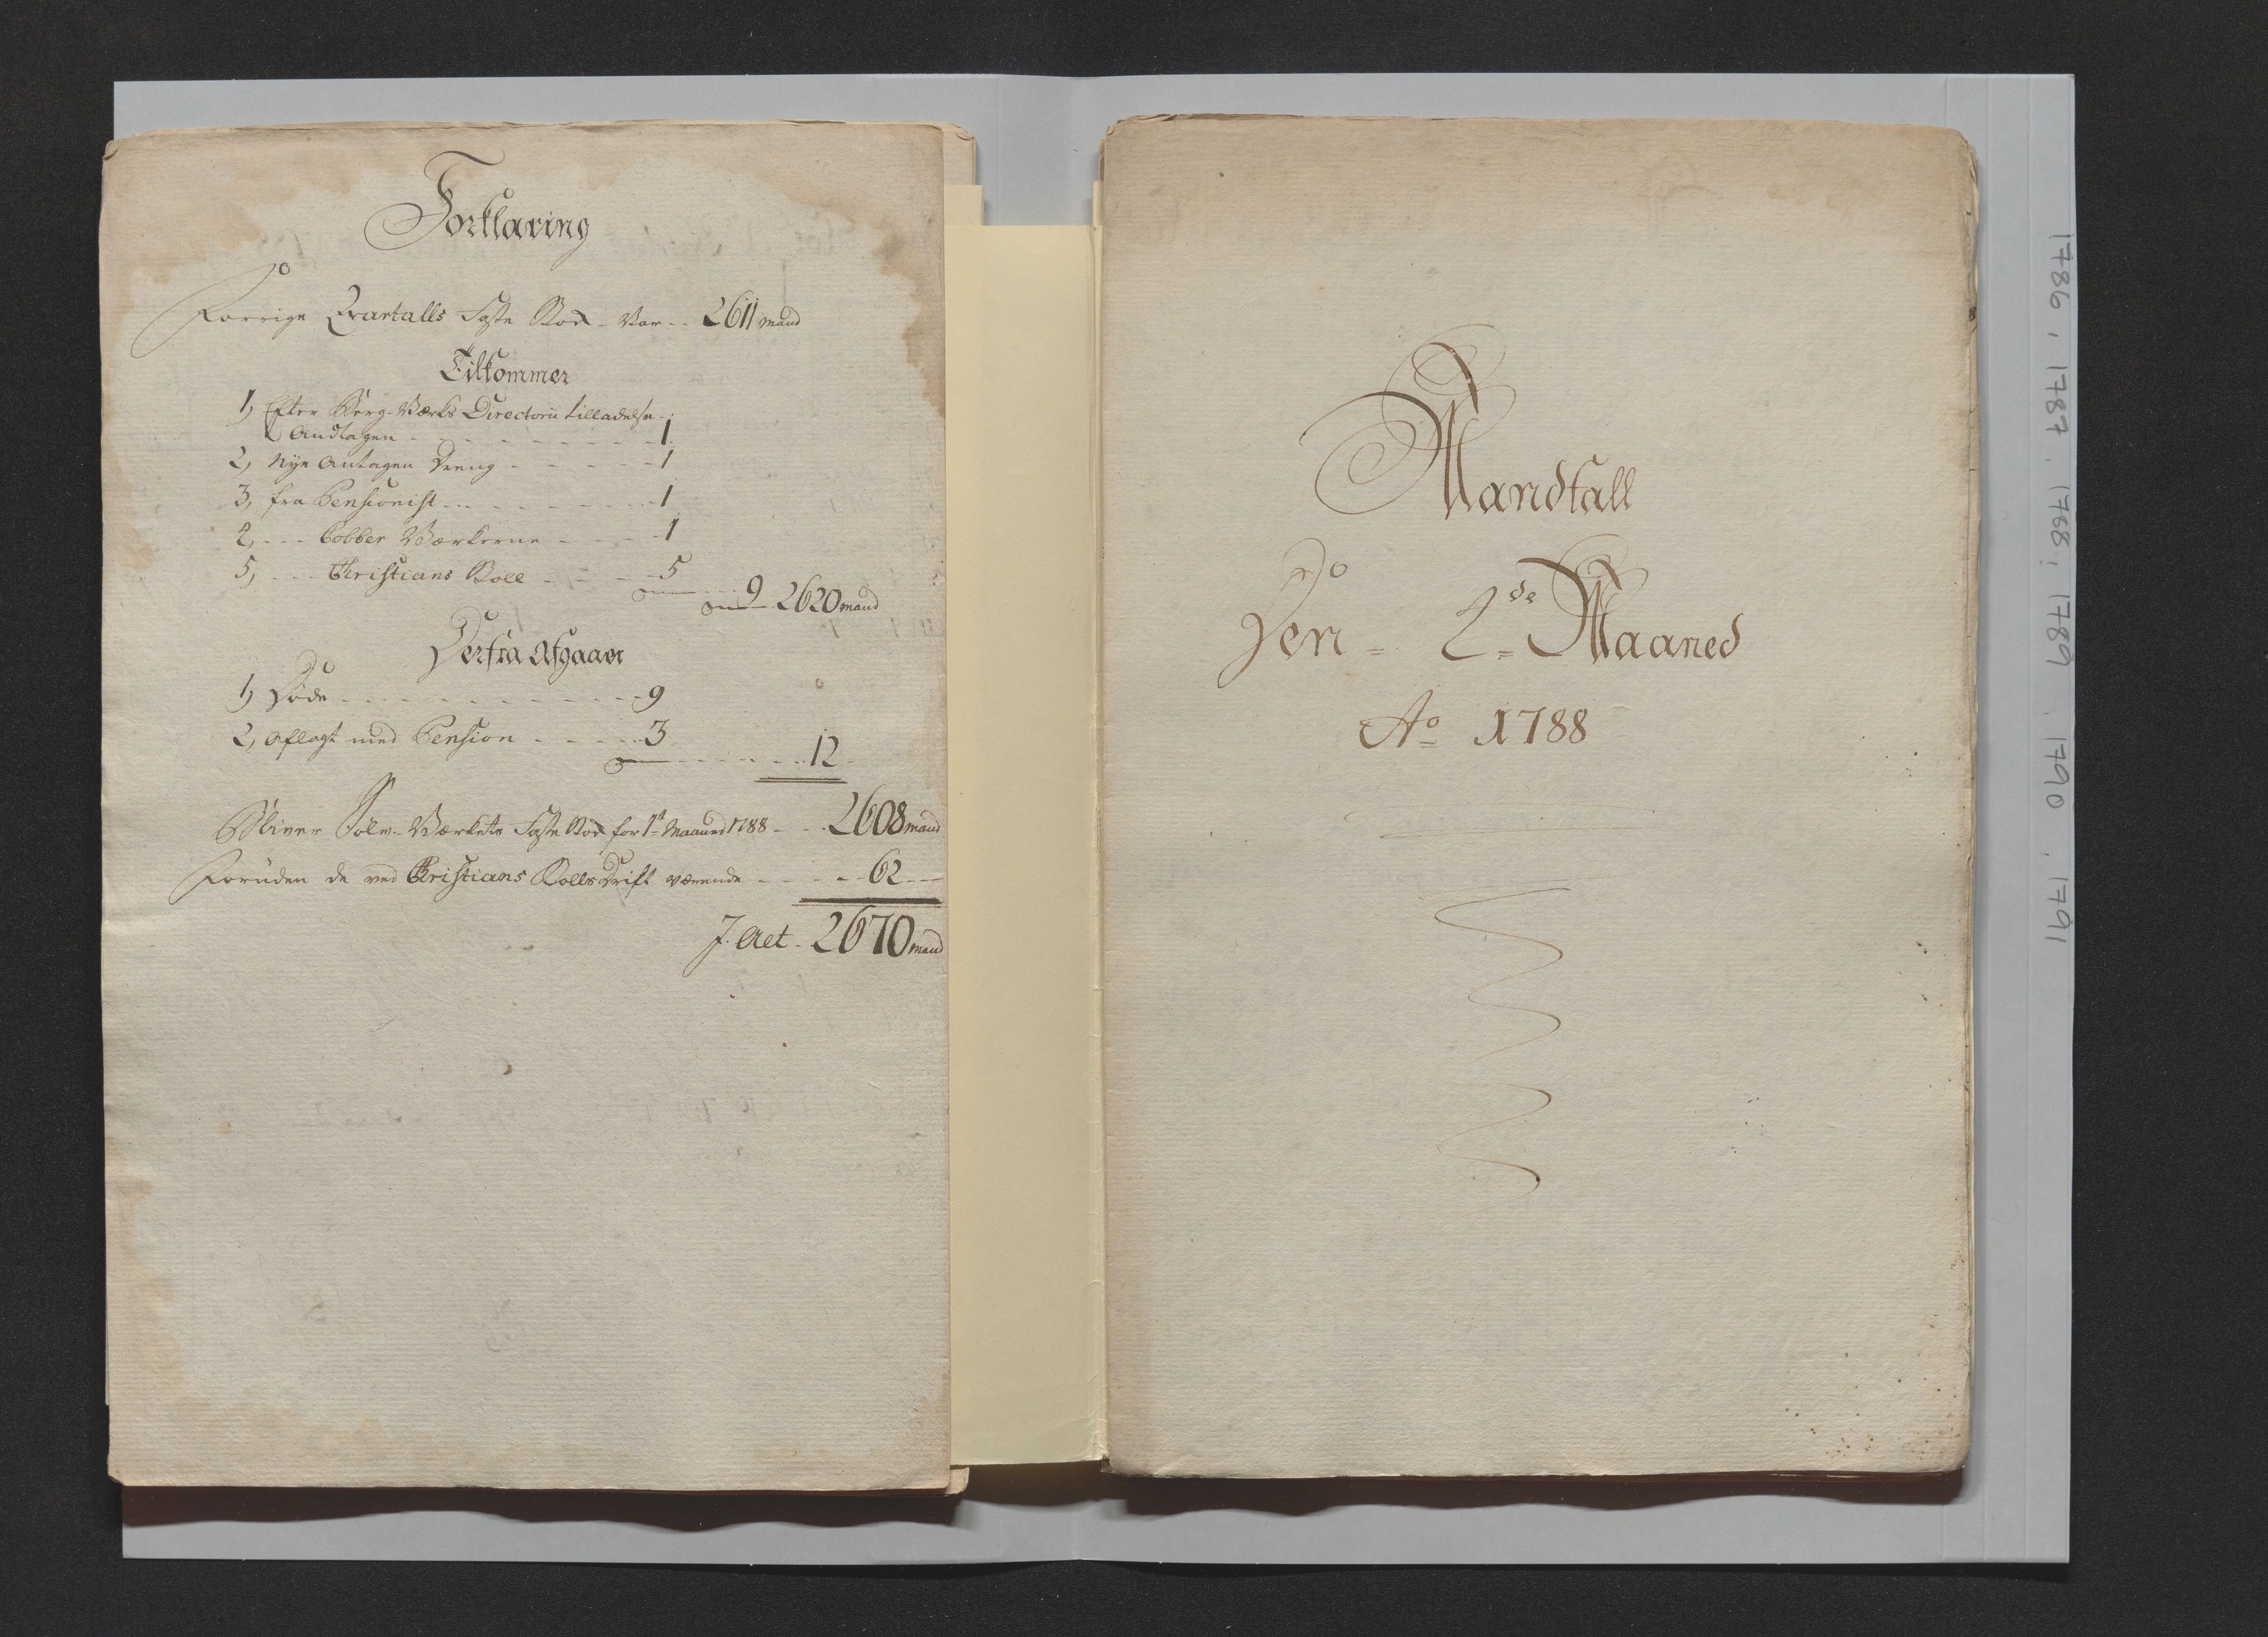 Forklaring
Forrige Qvartalls Faste Stok - Var - - 2611 mand
Tilkommer
1, Efter Berg-Værks Directorii tilladelse
Andtagen - - - 1
2, Nye Antagen Dreng - - - - - 1
3, fra Pensionist - - - - - - 1
4, - - - Cobber Værkerne - - - - 1
5, - - - Christians Koll - - - - 5
9 2620 mand
Derfra Afgaaer
1, Døde - - - - - - - - - - 9
2, Aflagt med Pension - - - - - 3
12
Bliver Sølv-Værkets Faste Stok for 1ste Maaned 1788 - - 2608 mand
Foruden de ved Christians Kolls Drift værende - - - - - 62 - -
J. Alt - 2670 mand
Mandtall
Den = 2de = Maaned
Ao 1788
1786 , 1787 . 1788 , 1789 . 1790 . 1791